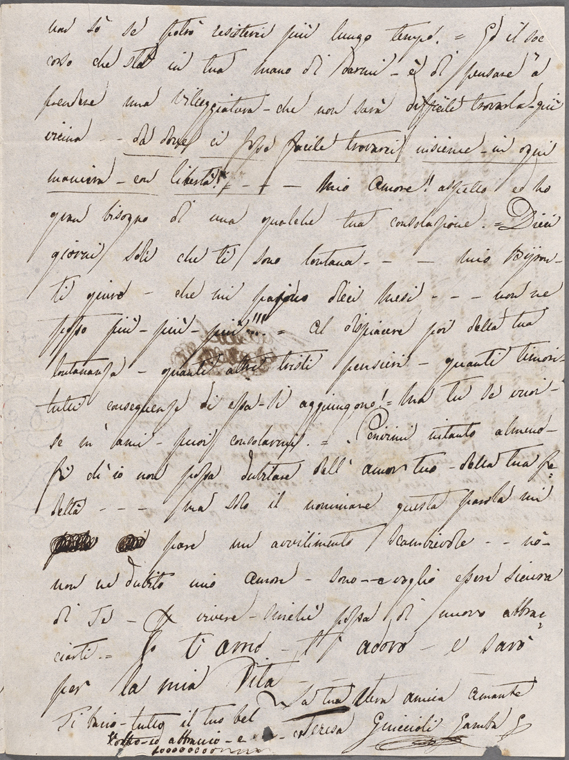 non sò se potrò resistervi più lungo tempo. = Ed il soc
corso che stà in tua mano di darmi - è di pensare a
prendere una villeggiatura - che non sarà difficile trovarla - più
vicina - - da dove ci sia facile trovarci insieme - in ogni
maniera - con libertà! - - - Mio Amore!! aspetto ed ho
gran bisogno di una qualche tua consolazione. = Dieci
giorni soli che ti sono lontana - - - - mio Byron -
ti giuro - che mi pajono dieci mesi - - - non ne
posso più - più - più!!! = Al dispiacere poi della tua
lontananza - quanti altri tristi pensieri quanti timori -
tutti conseguenze di essa - si aggiungono! = Ma tu se vuoi -
se m'ami - puoi consolarmi. = Scrivimi intanto almeno -
fà ch'io non possa dubitare dell'amor tuo - della tua fe-
deltà - - - - ma solo il nominare questa parola mi
pare un avvilimento scambievole - - nò -
non ne dubito mio Amore - sono - e voglio essere sicura
di Te - e vivere - finchè possa di nuovo abbrac
ciarti. = Io ti amo - ti adoro - e sarò
per la mia Vita -
La tua vera amica amante
Ti bacio - tutto il tuo bel
Volto - io abbraccio - e
Teresa Guiccioli Gamba